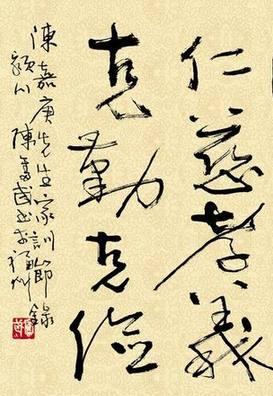 仁慈孝義
克勤克儉
陳嘉庚先生家訓節錄
潁川陳書國書於福州